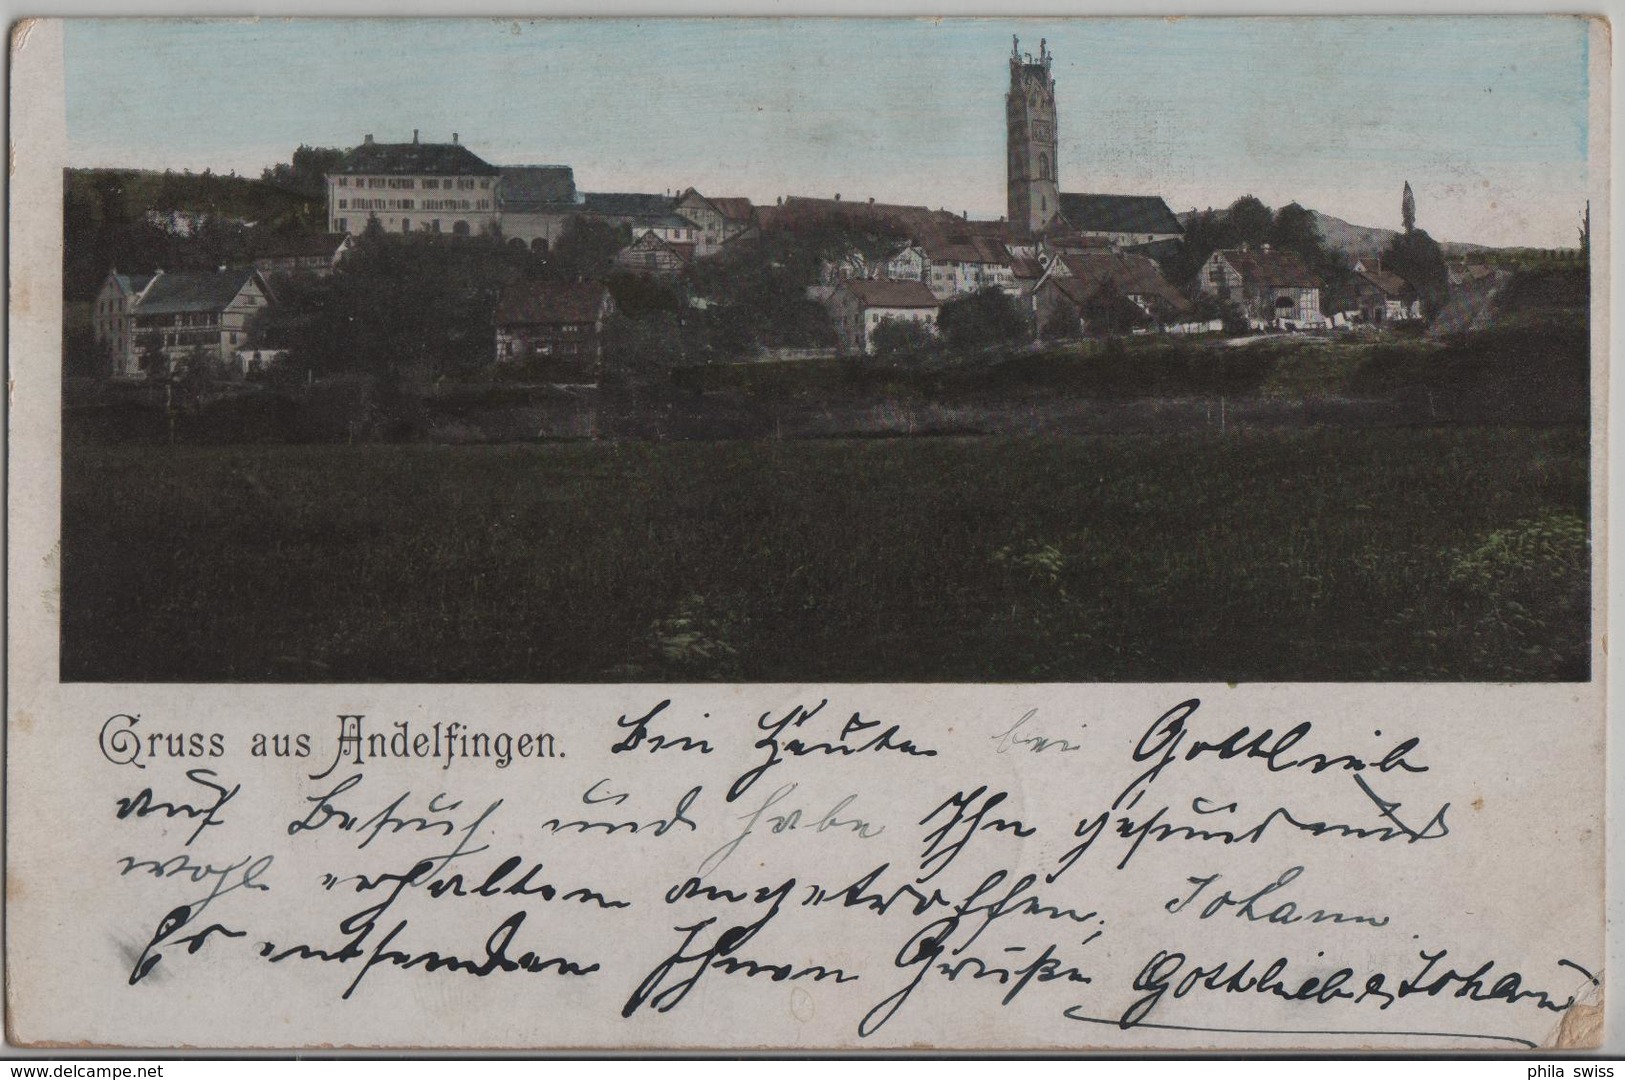 Gruss aus Andelfingen. Bin Heute bei Gottlieb
auf Besuch und habe Ihn gesund und
wohl erhalten angetroffen, Johann
Es entsenden Ihnen Grüße Gottlieb & Johann
Delcampe.net
phila swiss